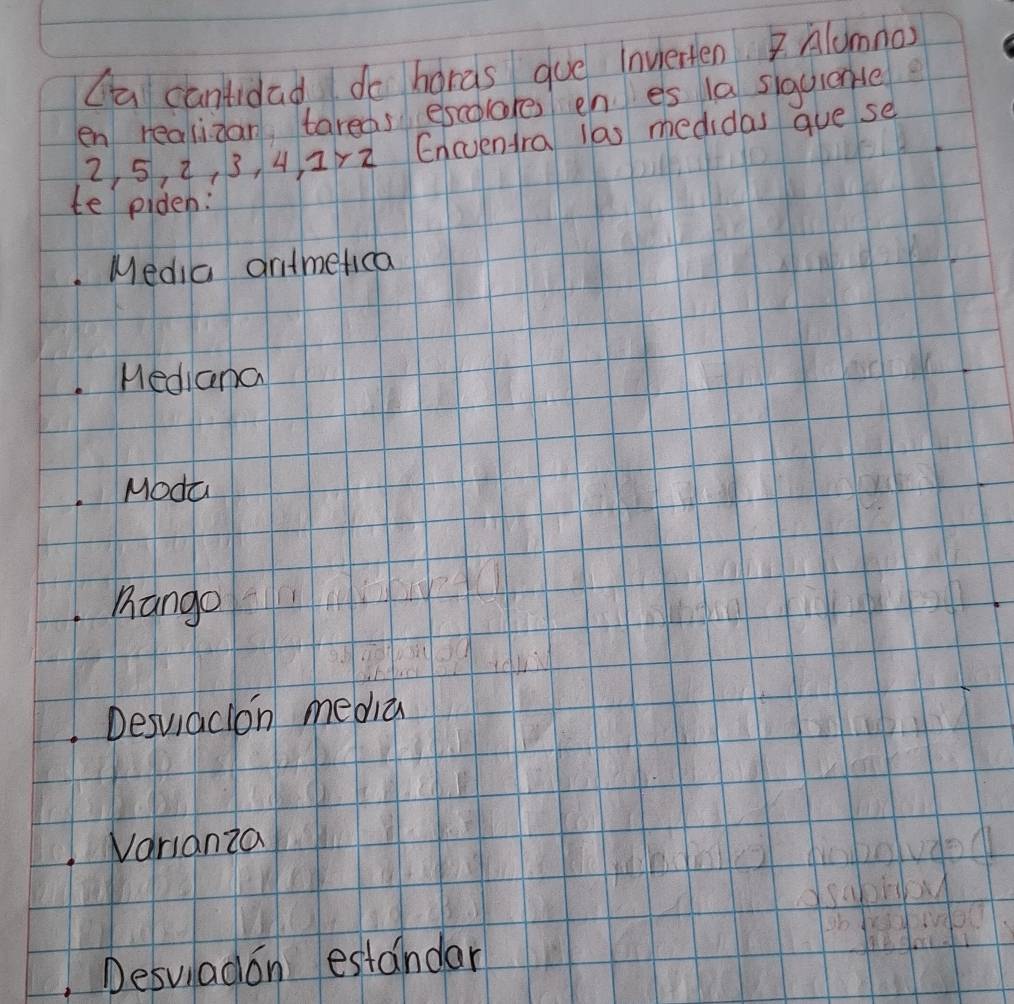 La cantidad de horas que invierten 7 Alumnos
en realizar tareas escolares en es la siguiente
2, 5, 2, 3, 4, 1 y 2 Encuentra las medidas que se
te piden:
. Media aritmetica
. Mediana
. Moda
. Rango
. Desviación media
. Varianza
. Desviación estándar